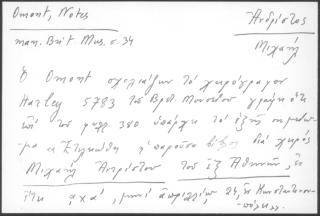 Omont, Notes
man. Brit Mus. σ. 34
Ἀνδρίστος
Μιχαήλ
Ὁ Omont σχολιάζων τὸ χειρόγραφον
Harley 5783 τοῦ Βρετ. Μουσείου γράφει ὅτι
ἐπὶ τοῦ φυλλ. 380 ὑπάρχει τὸ ἑξῆς σημείω-
μα ἡ παροῦσα βίβλος διὰ χειρὸς
Μιχαὴλ τοῦ ἐξ Ἀθηνῶν, ἐν
ἔτει μηνὶ ἀπριλλίῳ 24, ἐν Κωνσταντινου-
πόλει.